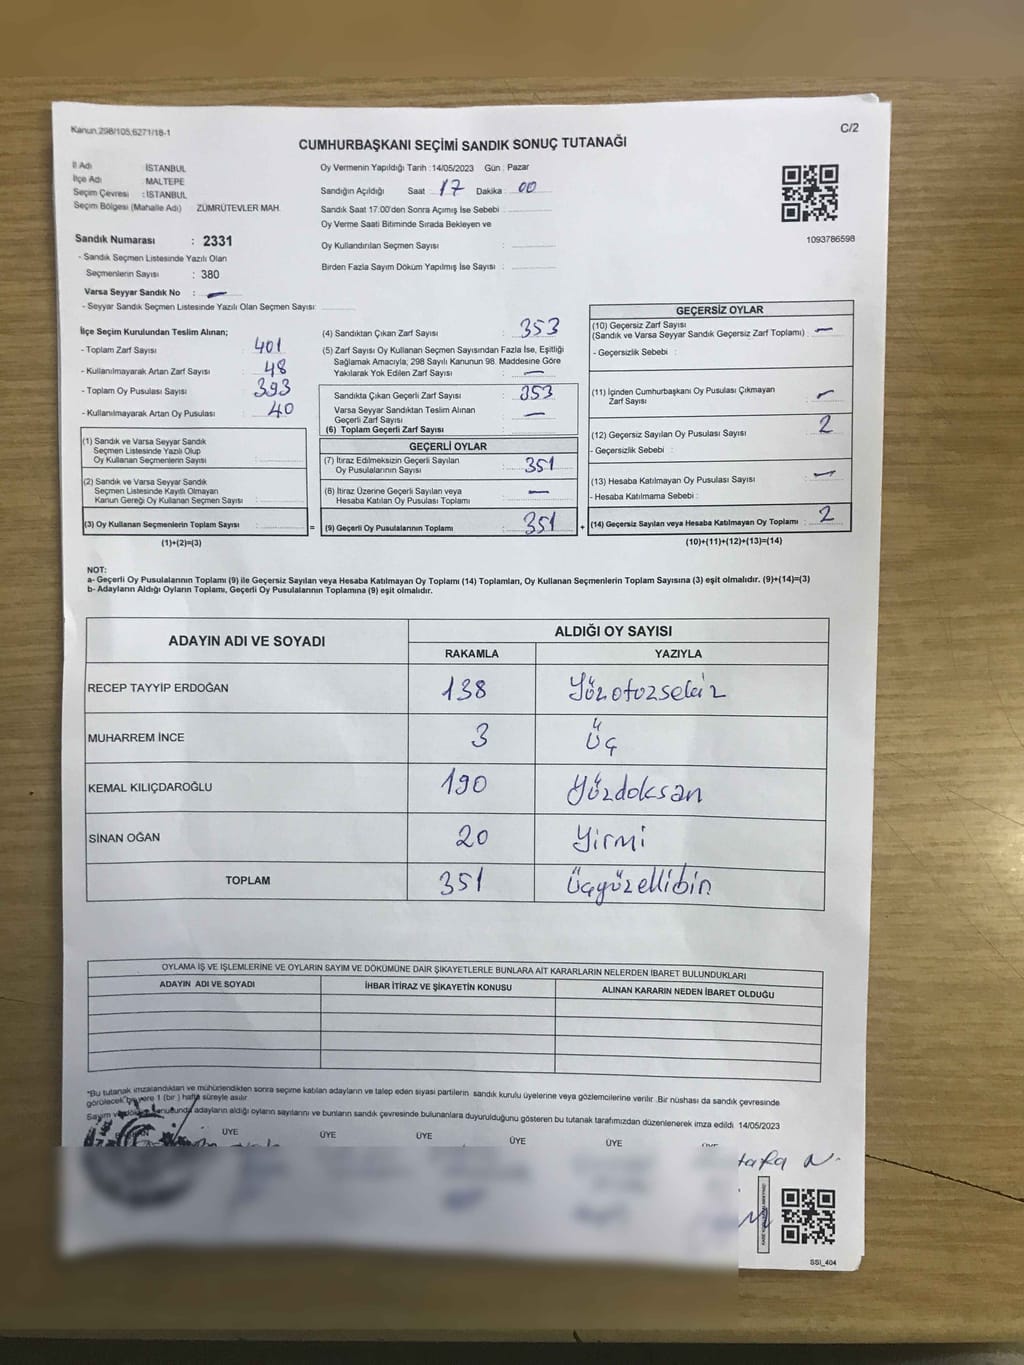 Kanun.298/105,6271/18-1
C/2
CUMHURBAŞKANI SEÇİMİ SANDIK SONUÇ TUTANAĞI
İl Adı İSTANBUL
İlçe Adı MALTEPE
Seçim Çevresi : İSTANBUL
Seçim Bölgesi (Mahalle Adı) ZÜMRÜTEVLER MAH.
Sandık Numarası : 2331
- Sandık Seçmen Listesinde Yazılı Olan
Seçmenlerin Sayısı : 380
Varsa Seyyar Sandık No : —
- Seyyar Sandık Seçmen Listesinde Yazılı Olan Seçmen Sayısı:
Oy Vermenin Yapıldığı Tarih : 14/05/2023 Gün : Pazar
Sandığın Açıldığı Saat : 17 Dakika : 00
Sandık Saat 17:00'den Sonra Açımış İse Sebebi :
Oy Verme Saati Bitiminde Sırada Bekleyen ve
Oy Kullandırılan Seçmen Sayısı :
Birden Fazla Sayım Döküm Yapılmış İse Sayısı :
1093786598
İlçe Seçim Kurulundan Teslim Alınan;
- Toplam Zarf Sayısı : 401
- Kullanılmayarak Artan Zarf Sayısı : 48
- Toplam Oy Pusulası Sayısı : 393
- Kullanılmayarak Artan Oy Pusulası : 40
(1) Sandık ve Varsa Seyyar Sandık
Seçmen Listesinde Yazılı Olup
Oy Kullanan Seçmenlerin Sayısı :
(2) Sandık ve Varsa Seyyar Sandık
Seçmen Listesinde Kayıtlı Olmayan
Kanun Gereği Oy Kullanan Seçmen Sayısı :
(3) Oy Kullanan Seçmenlerin Toplam Sayısı : =
(1)+(2)=(3)
(4) Sandıktan Çıkan Zarf Sayısı : 353
(5) Zarf Sayısı Oy Kullanan Seçmen Sayısından Fazla İse, Eşitliği
Sağlamak Amacıyla, 298 Sayılı Kanunun 98. Maddesine Göre
Yakılarak Yok Edilen Zarf Sayısı : —
Sandıkta Çıkan Geçerli Zarf Sayısı : 353
Varsa Seyyar Sandıktan Teslim Alınan
Geçerli Zarf Sayısı : —
(6) Toplam Geçerli Zarf Sayısı :
GEÇERLİ OYLAR
(7) İtiraz Edilmeksizin Geçerli Sayılan
Oy Pusulalarının Sayısı : 351
(8) İtiraz Üzerine Geçerli Sayılan veya
Hesaba Katılan Oy Pusulası Toplamı : —
(9) Geçerli Oy Pusulalarının Toplamı : 351 +
GEÇERSİZ OYLAR
(10) Geçersiz Zarf Sayısı
(Sandık ve Varsa Seyyar Sandık Geçersiz Zarf Toplamı) : —
- Geçersizlik Sebebi :
(11) İçinden Cumhurbaşkanı Oy Pusulası Çıkmayan
Zarf Sayısı : —
(12) Geçersiz Sayılan Oy Pusulası Sayısı : 2
- Geçersizlik Sebebi :
(13) Hesaba Katılmayan Oy Pusulası Sayısı : —
- Hesaba Katılmama Sebebi :
(14) Geçersiz Sayılan veya Hesaba Katılmayan Oy Toplamı : 2
(10)+(11)+(12)+(13)=(14)
NOT:
a- Geçerli Oy Pusulalarının Toplamı (9) ile Geçersiz Sayılan veya Hesaba Katılmayan Oy Toplamı (14) Toplamları, Oy Kullanan Seçmenlerin Toplam Sayısına (3) eşit olmalıdır. (9)+(14)=(3)
b- Adayların Aldığı Oyların Toplamı, Geçerli Oy Pusulalarının Toplamına (9) eşit olmalıdır.
ADAYIN ADI VE SOYADI ALDIĞI OY SAYISI
RAKAMLA YAZIYLA
RECEP TAYYİP ERDOĞAN 138 Yüzotuzsekiz
MUHARREM İNCE 3 Üç
KEMAL KILIÇDAROĞLU 190 Yüzdoksan
SİNAN OĞAN 20 Yirmi
TOPLAM 351 Üçyüzellibin
OYLAMA İŞ VE İŞLEMLERİNE VE OYLARIN SAYIM VE DÖKÜMÜNE DAİR ŞİKAYETLERLE BUNLARA AİT KARARLARIN NELERDEN İBARET BULUNDUKLARI
ADAYIN ADI VE SOYADI İHBAR İTİRAZ VE ŞİKAYETİN KONUSU ALINAN KARARIN NEDEN İBARET OLDUĞU
*Bu tutanak imzalandıktan ve mühürlendikten sonra seçime katılan adayların ve talep eden siyasi partilerin sandık kurulu üyelerine veya gözlemcilerine verilir .Bir nüshası da sandık çevresinde
görülecek bir yere 1 (bir ) hafta süreyle asılır.
Sayım ve adayların aldığı oyların sayılarını ve bunların sandık çevresinde bulunanlara duyurulduğunu gösteren bu tutanak tarafımızdan düzenlenerek imza edildi 14/05/2023
ÜYE ÜYE ÜYE ÜYE ÜYE
SSI_404